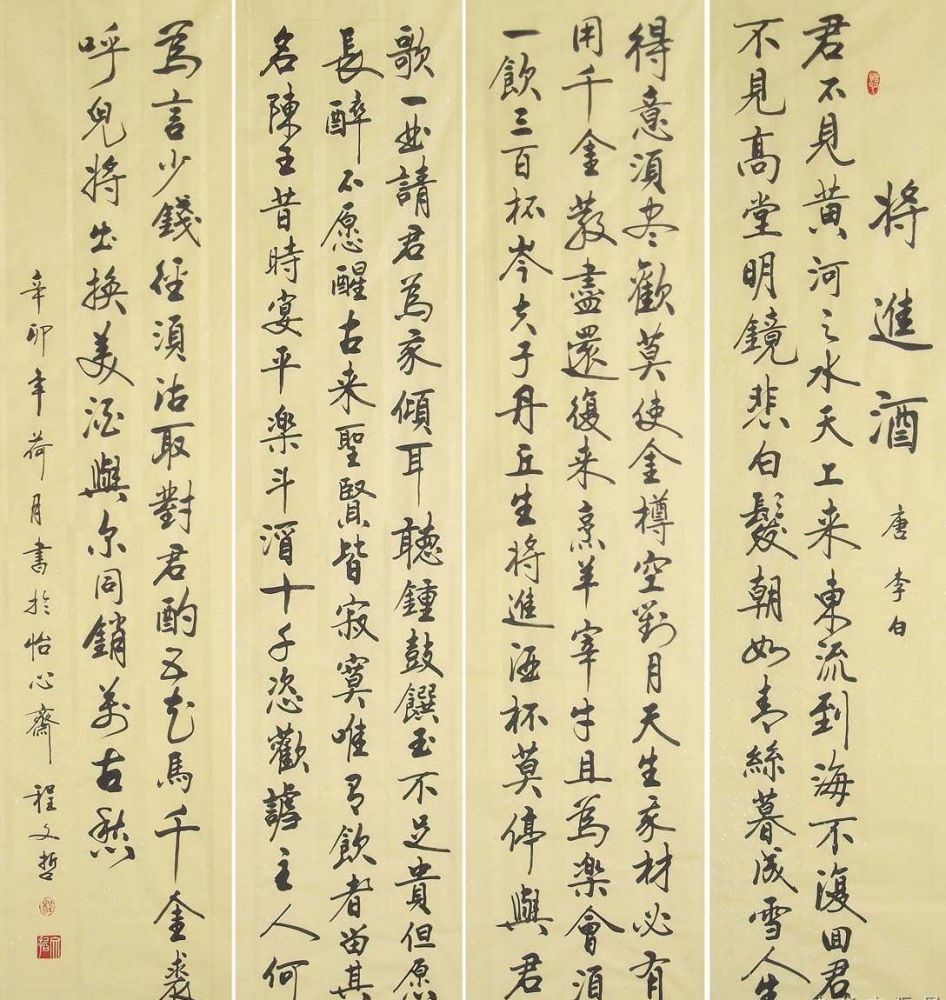 將進酒 唐 李白
君不見黄河之水天上来東流到海不復回君
不見高堂明鏡悲白髮朝如青絲暮成雪人生
得意須尽歡莫使金樽空對月天生我材必有
用千金散盡還復来烹羊宰牛且為樂會須
一飲三百杯岑夫子丹丘生將進酒杯莫停與君
歌一曲請君為我傾耳聽鍾鼓饌玉不足貴但愿
長醉不愿醒古来聖賢皆寂寞唯有飲者留其
名陳王昔時宴平樂斗酒十千恣歡謔主人何
為言少錢徑須沽取對君酌五花馬千金裘
呼兒將出換美酒與尔同銷萬古愁
辛卯年荷月書於怡心齋 程文哲